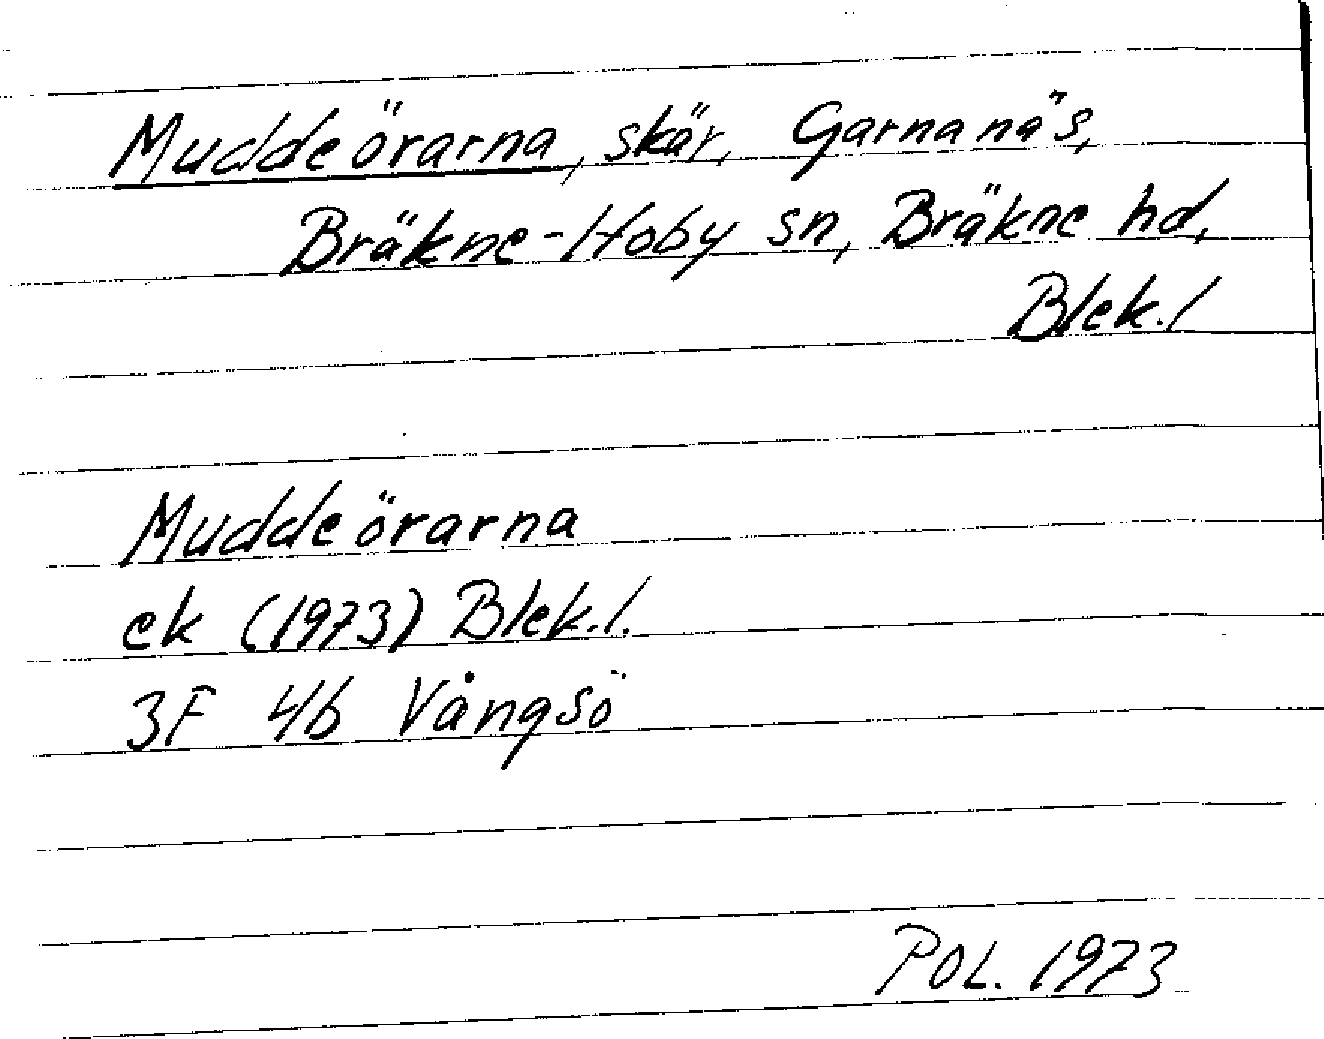 Muddeörarna, skär, Garnanäs,
Bräkne-Hoby sn, Bräkne hd,
Blek.l
Muddeörarna
ek (1973) Blek.l.
3F 4b Vångsö
POL. 1973